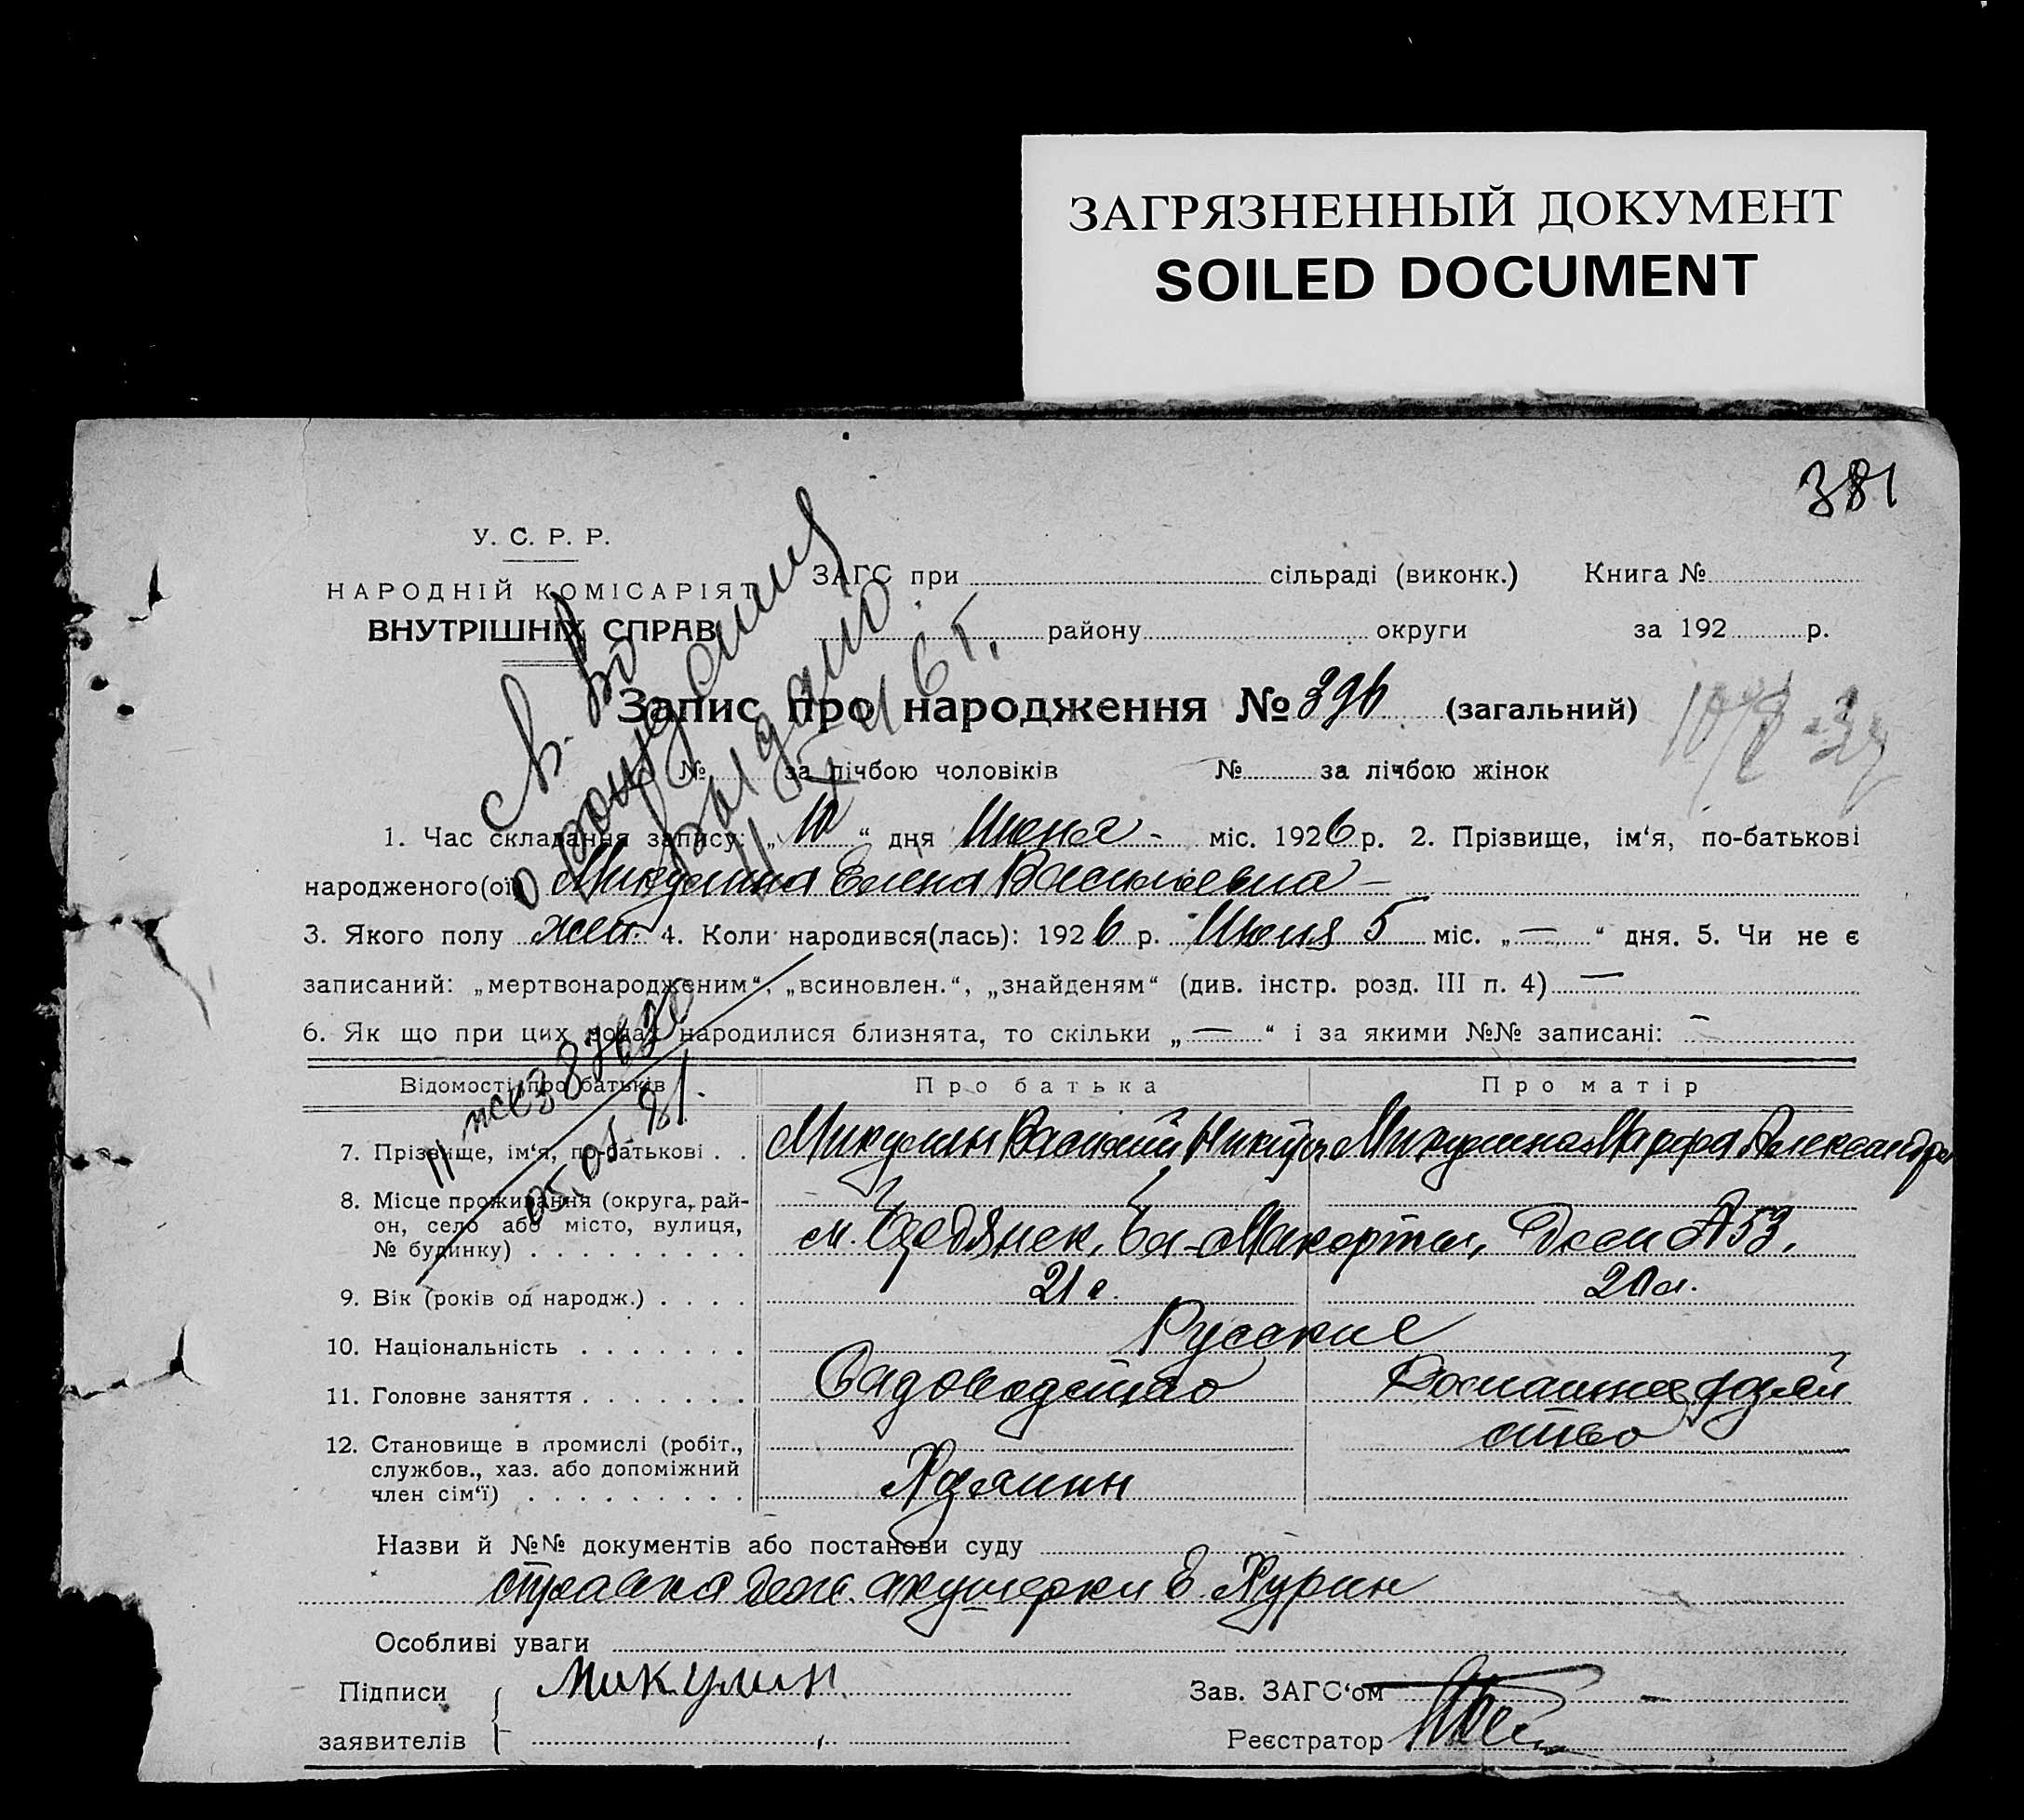 ЗАГРЯЗНЕННЫЙ ДОКУМЕНТ
SOILED DOCUMENT
381
У. С. Р. Р.
НАРОДНІЙ КОМІСАРІЯТ
ВНУТРІШНІХ СПРАВ
ЗАГС при сільраді (виконк.) Книга №
району округи за 192 р.
Запис про народження № 396 (загальний)
№ за лічбою чоловіків № за лічбою жінок
Св-во
о рождении
выдано
1. Час складання запису: „10“ дня Июня - міс. 1926 р. 2. Прізвище, ім'я, по-батькові
народженого(ої) Микулина Елена Васильевна -
3. Якого полу жен. 4. Коли народився(лась): 1926 р. Июня 5 міс. „—“ дня. 5. Чи не є
записаний: „мертвонародженим“, „всиновлен.“, „знайденям“ (див. інстр. розд. III п. 4) —
6. Як що при цих родах народилися близнята, то скільки „—“ і за якими №№ записані: -
05.01.81.
Відомості про батьків Про батька Про матір
7. Прізвище, ім'я, по-батькові . . Микулин Василий Микулина Марфа Александр
8. Місце проживання (округа, рай-
он, село або місто, вулиця,
№ будинку) . . . . . . . . . м. Дом № 53.
9. Вік (років од народж.) . . . . 21 г. 20 л.
10. Національність . . . . . . . Русские
11. Головне заняття . . . . . . . Садоводство Домашнее хозяй
ство
12. Становище в промислі (робіт.,
службов., хаз. або допоміжний
член сім'ї) . . . . . . . . . Хозяин
Назви й №№ документів або постанови суду
справка акушерки Е.
Особливі уваги
Підписи Микулин Зав. ЗАГС'ом
заявителів Реєстратор